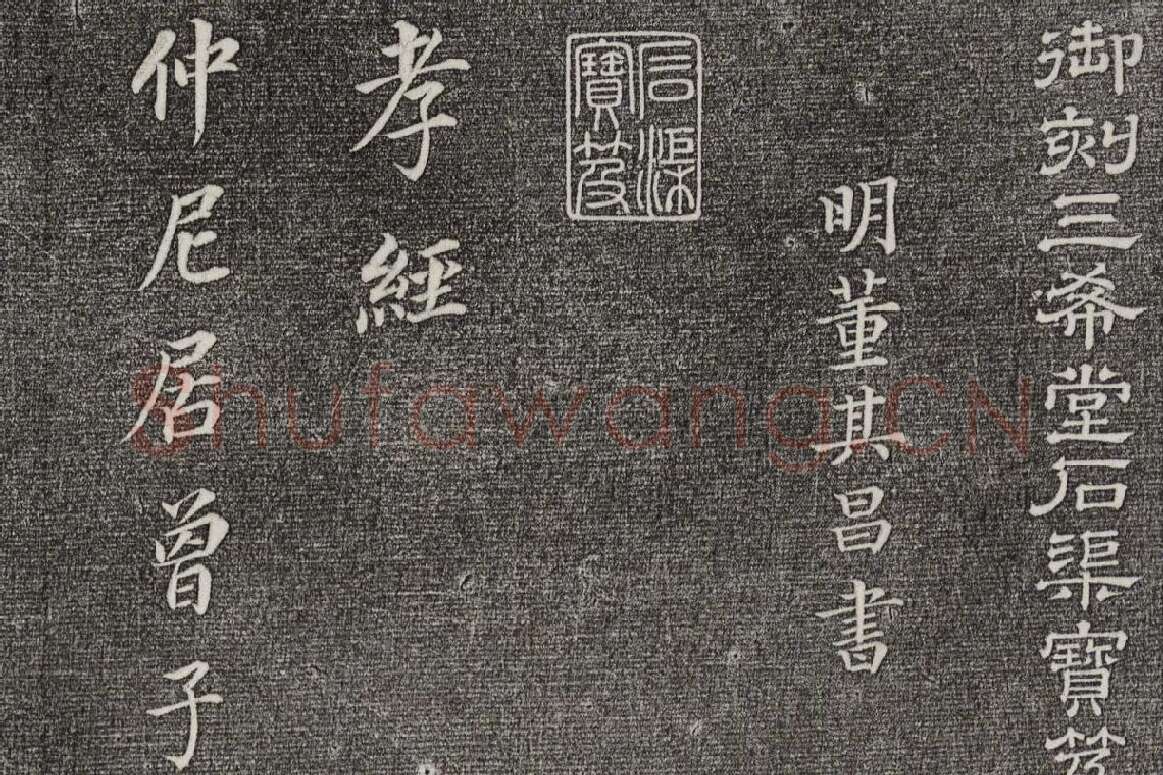 御刻三希堂石渠寶笈
明董其昌書
石渠寶笈
孝經
仲尼居曾子
Shufawang.CN